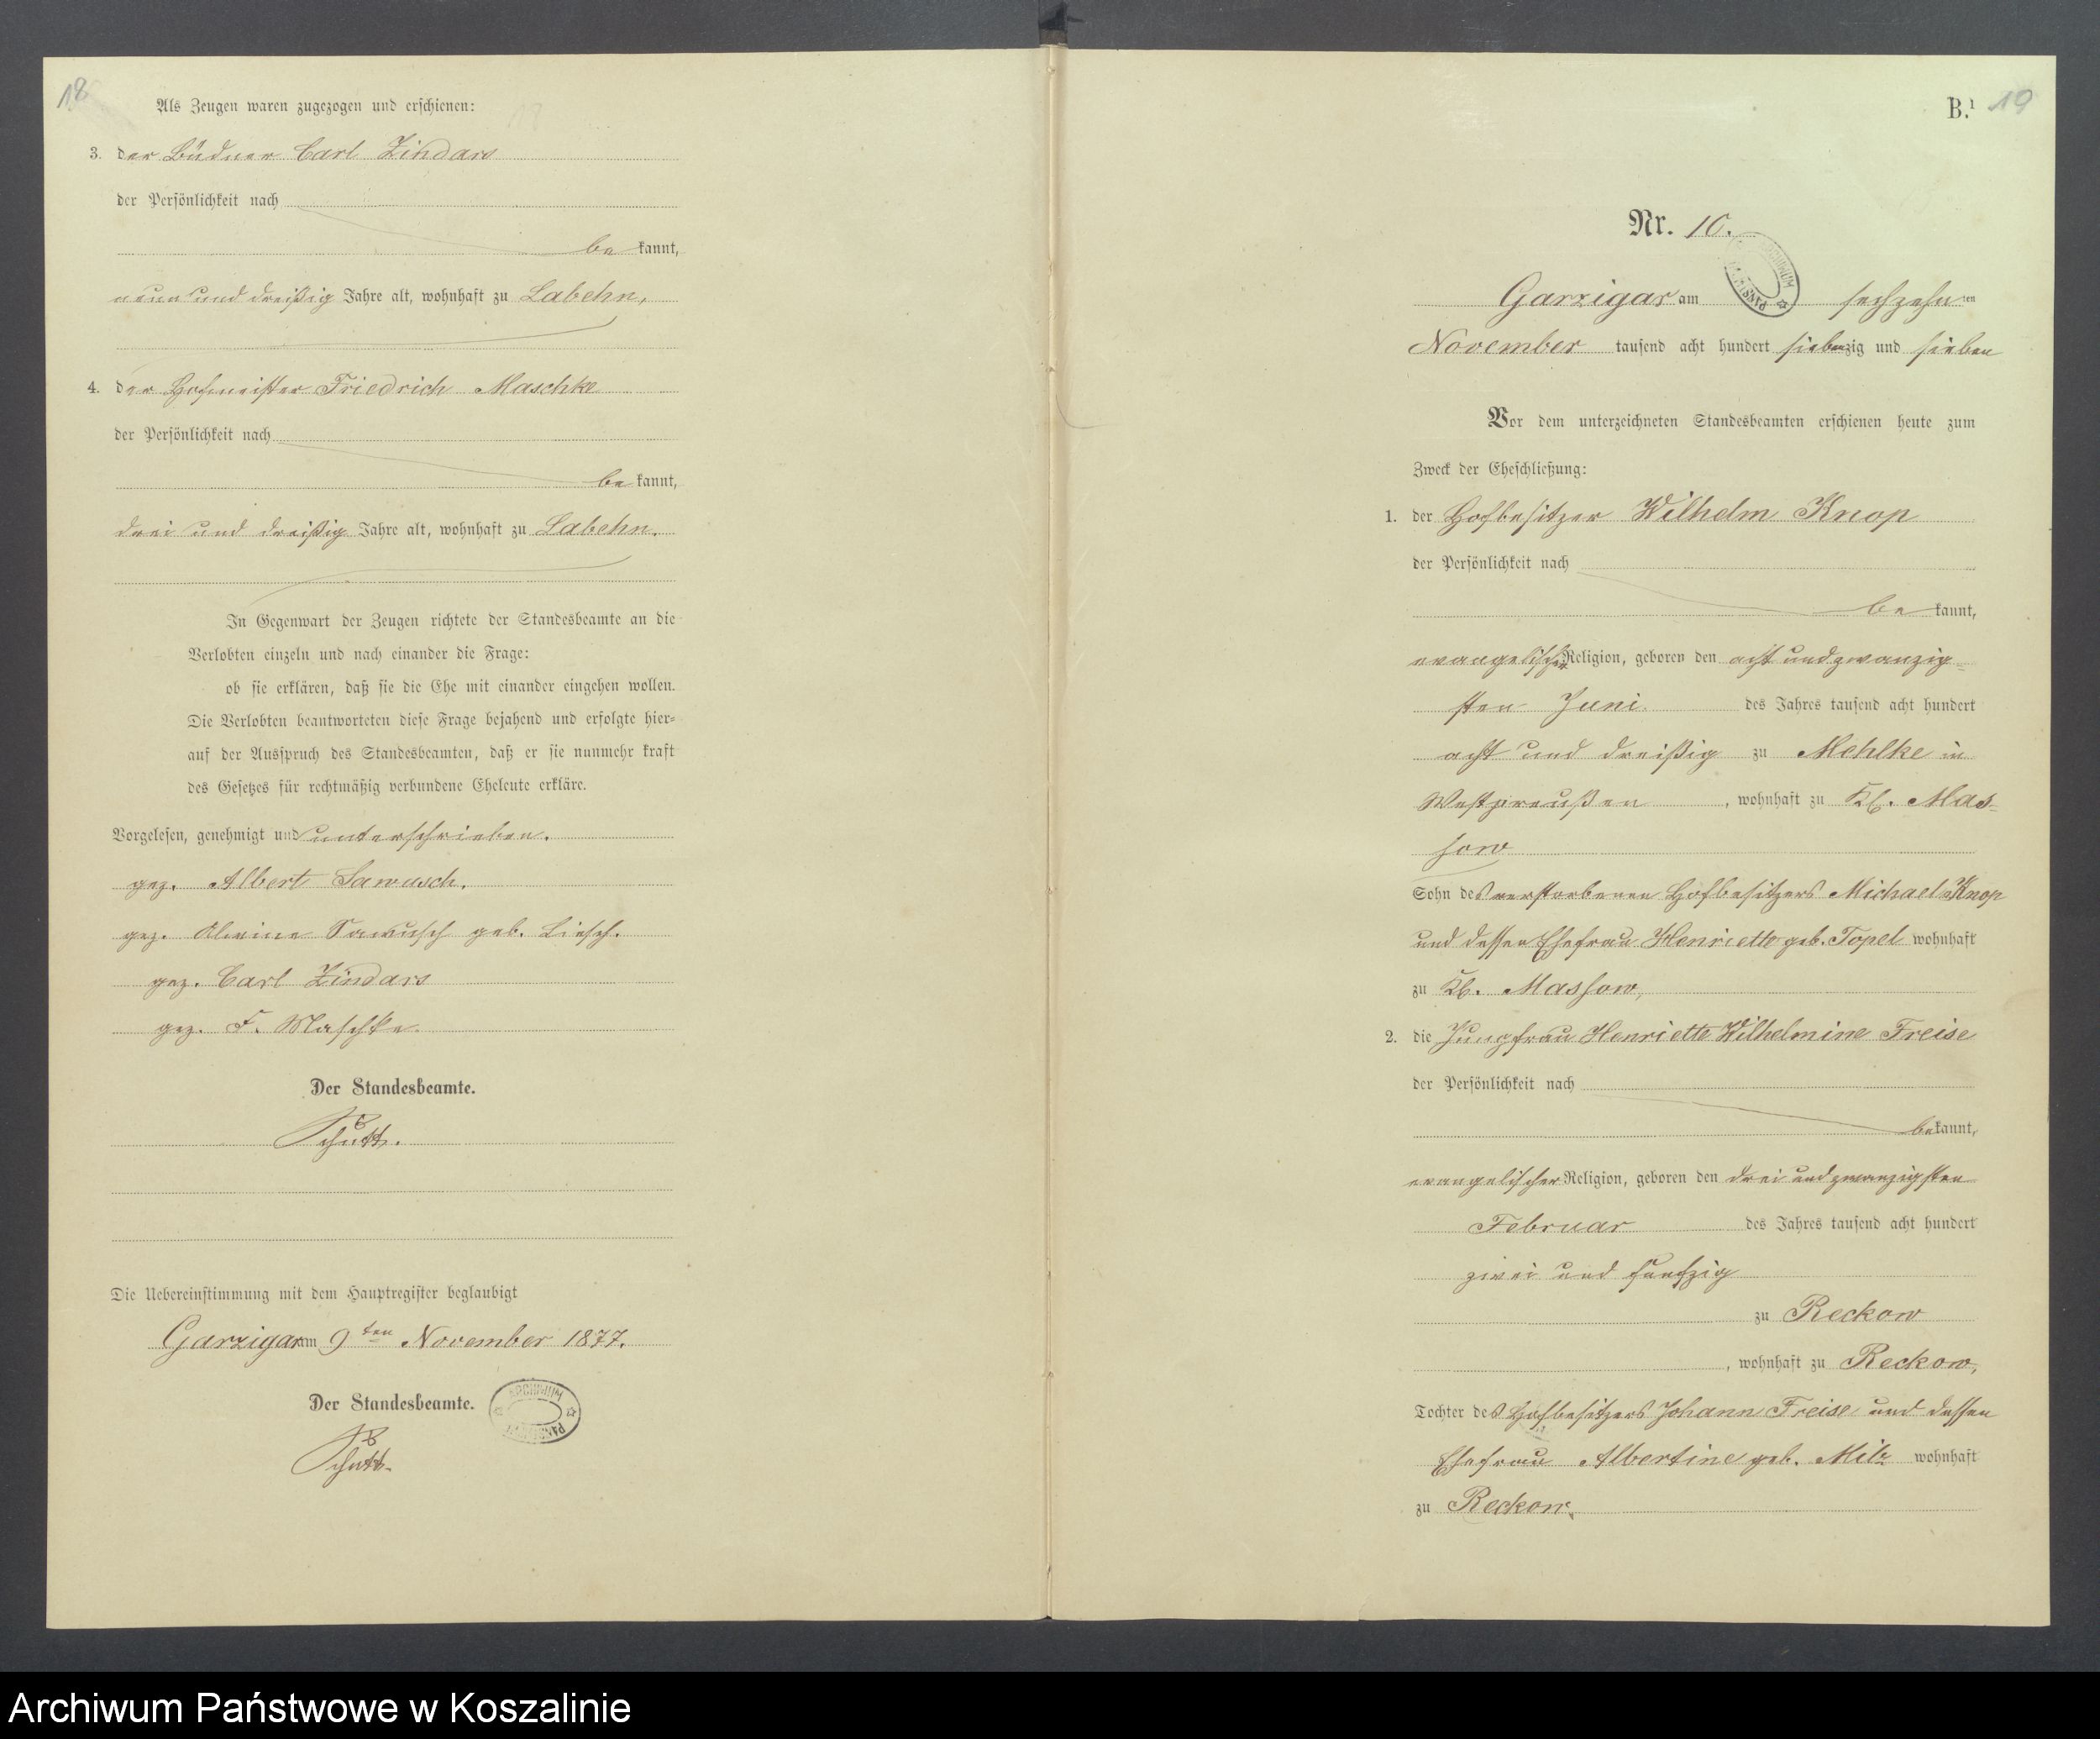 18
Als Zeugen waren zugezogen und erschienen:
3. der Büdner Carl Zindars
der Persönlichkeit nach
be kannt,
neun und dreißig Jahre alt, wohnhaft zu Labehn,
4. der Hofmeister Friedrich Maschke
der Persönlichkeit nach
be kannt,
drei und dreißig Jahre alt, wohnhaft zu Labehn.
In Gegenwart der Zeugen richtete der Standesbeamte an die
Verlobten einzeln und nach einander die Frage:
ob sie erklären, daß sie die Ehe mit einander eingehen wollen.
Die Verlobten beantworteten diese Frage bejahend und erfolgte hier-
auf der Ausspruch des Standesbeamten, daß er sie nunmehr kraft
des Gesetzes für rechtmäßig verbundene Eheleute erkläre.
Vorgelesen, genehmigt und unterschrieben.
gez. Albert Sawusch.
gez. Alwine Sawusch geb. Liesch.
gez. Carl Zindars
gez. F. Maschke.
Der Standesbeamte.
Schütt.
Die Uebereinstimmung mit dem Hauptregister beglaubigt
Garzigar am 9ten November 1877.
Der Standesbeamte.
Schütt.
B.1 19
Nr. 10.
Garzigar am sechzehnten
November tausend acht hundert siebenzig und sieben
Vor dem unterzeichneten Standesbeamten erschienen heute zum
Zweck der Eheschließung:
1. der Hofbesitzer Wilhelm Knop
der Persönlichkeit nach
be kannt,
evangelischer Religion, geboren den acht und zwanzig-
sten Juni des Jahres tausend acht hundert
acht und dreißig zu Mehlke in
Westpreußen, wohnhaft zu Kl. Mas-
sow
Sohn des verstorbenen Hofbesitzers Michael Knop
und dessen Ehefrau Henriette geb. Topel wohnhaft
zu Kl. Massow,
2. die Jungfrau Henriette Wilhelmine Freise
der Persönlichkeit nach
be kannt,
evangelischer Religion, geboren den drei und zwanzigsten
Februar des Jahres tausend acht hundert
zwei und funfzig
zu Reckow
, wohnhaft zu Reckow,
Tochter des Hofbesitzers Johann Freise und dessen
Ehefrau Albertine geb. Milz wohnhaft
zu Reckow.
Archiwum Państwowe w Koszalinie